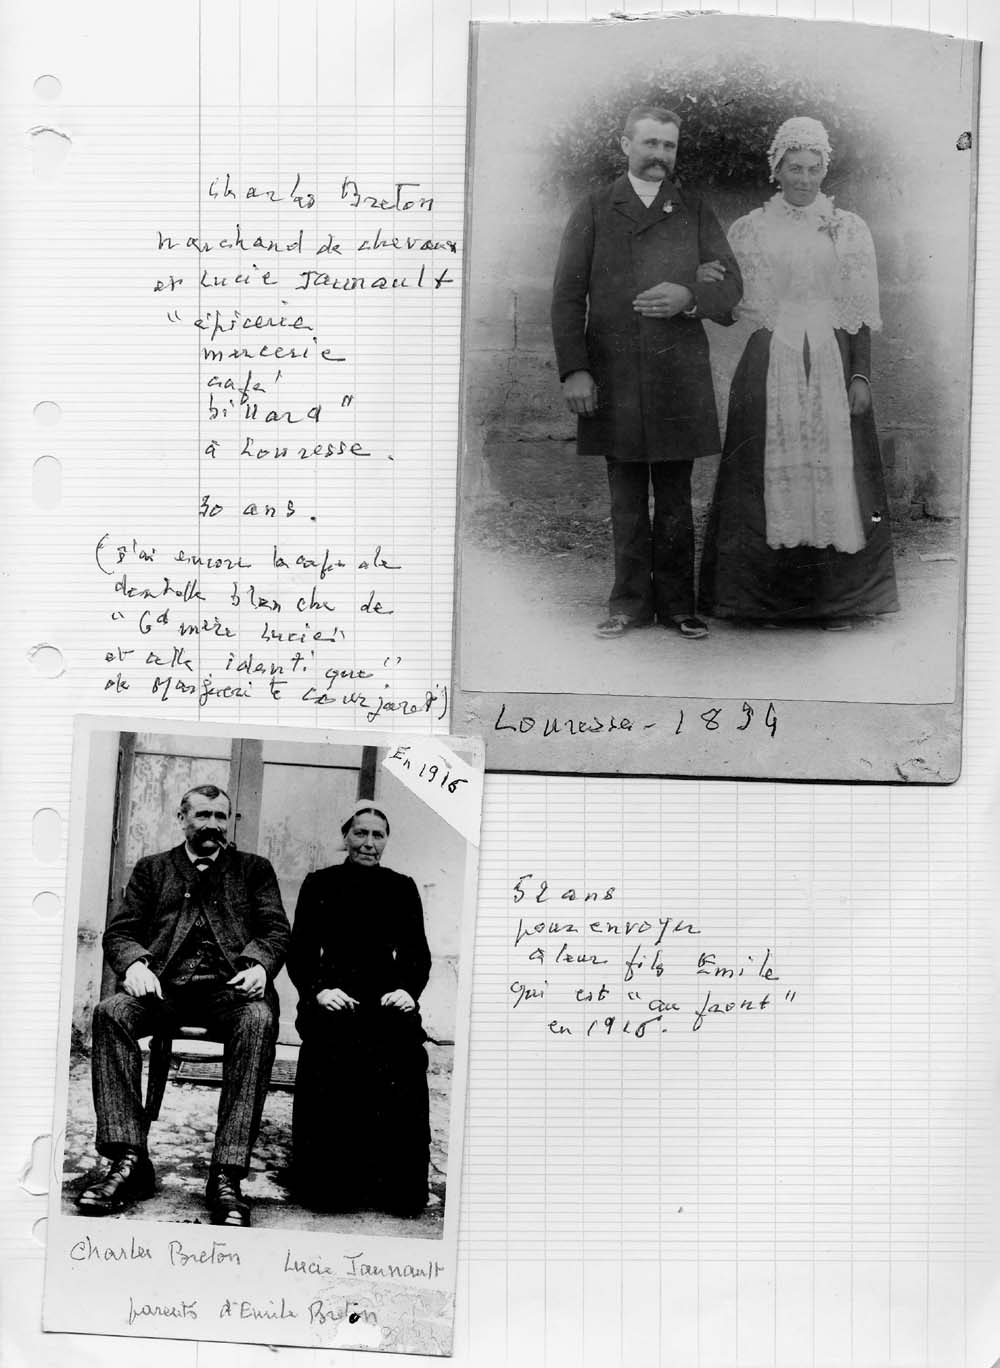 Charles Breton
marchand de chevaux
et Lucie Jaunault
"épicerie
mercerie
café
billard"
à Louresse.
30 ans.
(j'ai encore la cape de
dentelle blanche de
"Gd mère Lucie"
et celle identique"
de Marguerite Courjaret)
Louresse - 1894
En 1916
52 ans
pour envoyer
à leur fils Emile
qui est "au front"
en 1916.
Charles Breton Lucie Jaunault
parents d'Emile Breton